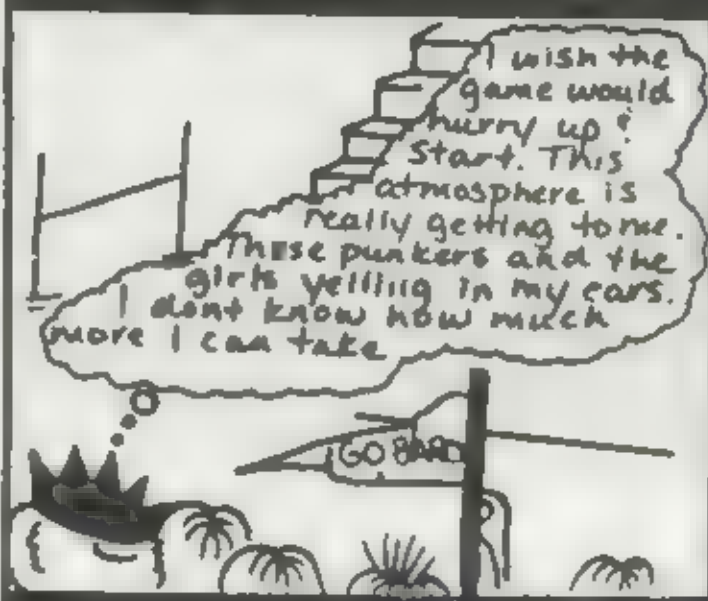 I wish the
game would
hurry up &
Start. This
atmosphere is
really getting to me.
These punkers and the
girls yelling in my ears.
I dont know how much
more I can take
GO BARD